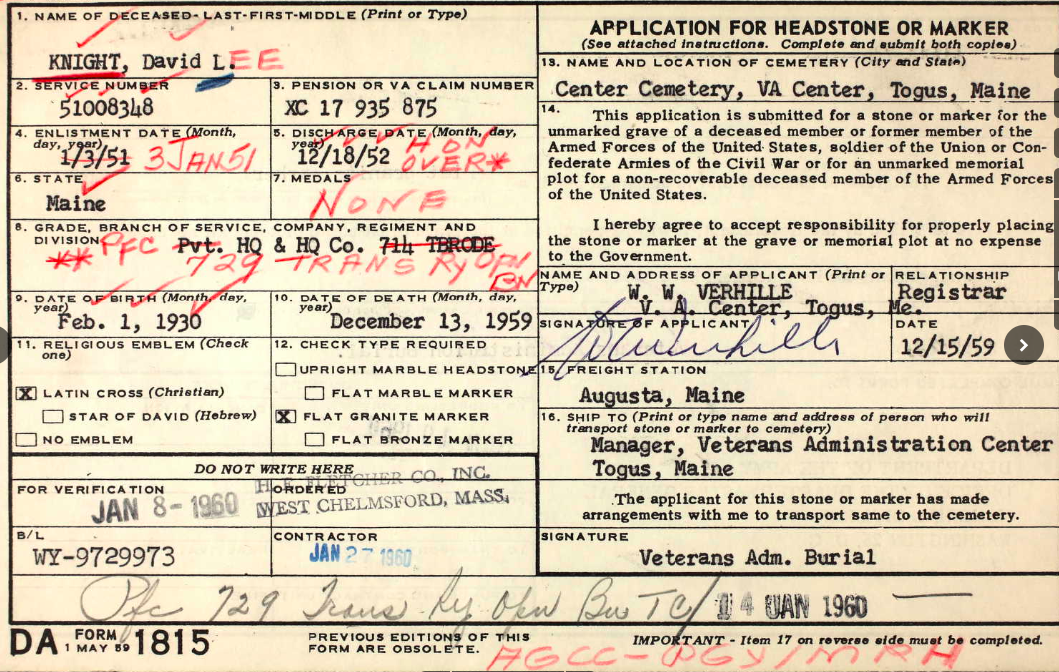 1. NAME OF DECEASED - LAST-FIRST-MIDDLE (Print or Type)
KNIGHT, David L.EE
2. SERVICE NUMBER
51008348
3. PENSION OR VA CLAIM NUMBER
XC 17 935 875
4. ENLISTMENT DATE (Month, day, year)
1/3/51 3 JAN 51
5. DISCHARGE DATE (Month, day, year)
12/18/52 HON
OVER*
6. STATE
Maine
7. MEDALS
NONE
8. GRADE, BRANCH OF SERVICE, COMPANY, REGIMENT AND DIVISION
** PFC Pvt. HQ & HQ Co. 714 TBRODE
729 TRANS Ry OPN
BN
9. DATE OF BIRTH (Month, day, year)
Feb. 1, 1930
10. DATE OF DEATH (Month, day, year)
December 13, 1959
11. RELIGIOUS EMBLEM (Check one)
X LATIN CROSS (Christian)
STAR OF DAVID (Hebrew)
NO EMBLEM
12. CHECK TYPE REQUIRED
UPRIGHT MARBLE HEADSTONE
FLAT MARBLE MARKER
X FLAT GRANITE MARKER
FLAT BRONZE MARKER
DO NOT WRITE HERE
FOR VERIFICATION
JAN 8 - 1960
ORDERED
H. E. FLETCHER CO., INC.
WEST CHELMSFORD, MASS.
B/L
WY-9729973
CONTRACTOR
JAN 27 1960
APPLICATION FOR HEADSTONE OR MARKER
(See attached instructions. Complete and submit both copies)
13. NAME AND LOCATION OF CEMETERY (City and State)
Center Cemetery, VA Center, Togus, Maine
14. This application is submitted for a stone or marker for the
unmarked grave of a deceased member or former member of the
Armed Forces of the United States, soldier of the Union or Con-
federate Armies of the Civil War or for an unmarked memorial
plot for a non-recoverable deceased member of the Armed Forces
of the United States.
I hereby agree to accept responsibility for properly placing
the stone or marker at the grave or memorial plot at no expense
to the Government.
NAME AND ADDRESS OF APPLICANT (Print or Type)
W. W. VERHILLE
V. A. Center, Togus, Me.
RELATIONSHIP
Registrar
SIGNATURE OF APPLICANT
DATE
12/15/59
15. FREIGHT STATION
Augusta, Maine
16. SHIP TO (Print or type name and address of person who will
transport stone or marker to cemetery)
Manager, Veterans Administration Center
Togus, Maine
The applicant for this stone or marker has made
arrangements with me to transport same to the cemetery.
SIGNATURE
Veterans Adm. Burial
Pfc 729 Trans Ry Opn Bn TC/ 14 JAN 1960
DA FORM 1 MAY 59 1815
PREVIOUS EDITIONS OF THIS
FORM ARE OBSOLETE.
IMPORTANT - Item 17 on reverse side must be completed.
AGCC-PGY/MRH